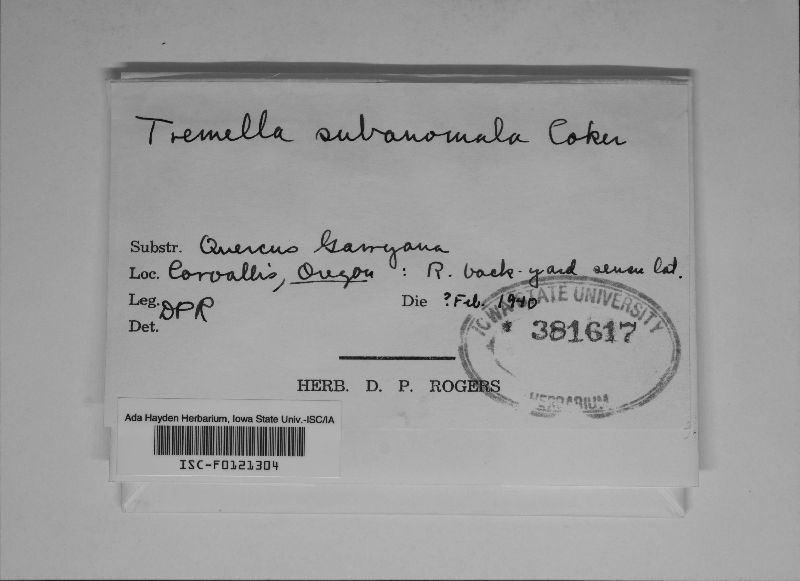 Tremella subanomala Coker
Substr. Quercus Garryana
Loc. Corvallis, Oregon : R. back-yard sensu lat.
Leg. DPR
Die ? Feb. 1940
Det.
IOWA STATE UNIVERSITY
* 381617
HERBARIUM
HERB. D. P. ROGERS
Ada Hayden Herbarium, Iowa State Univ.-ISC/IA
ISC-F0121304